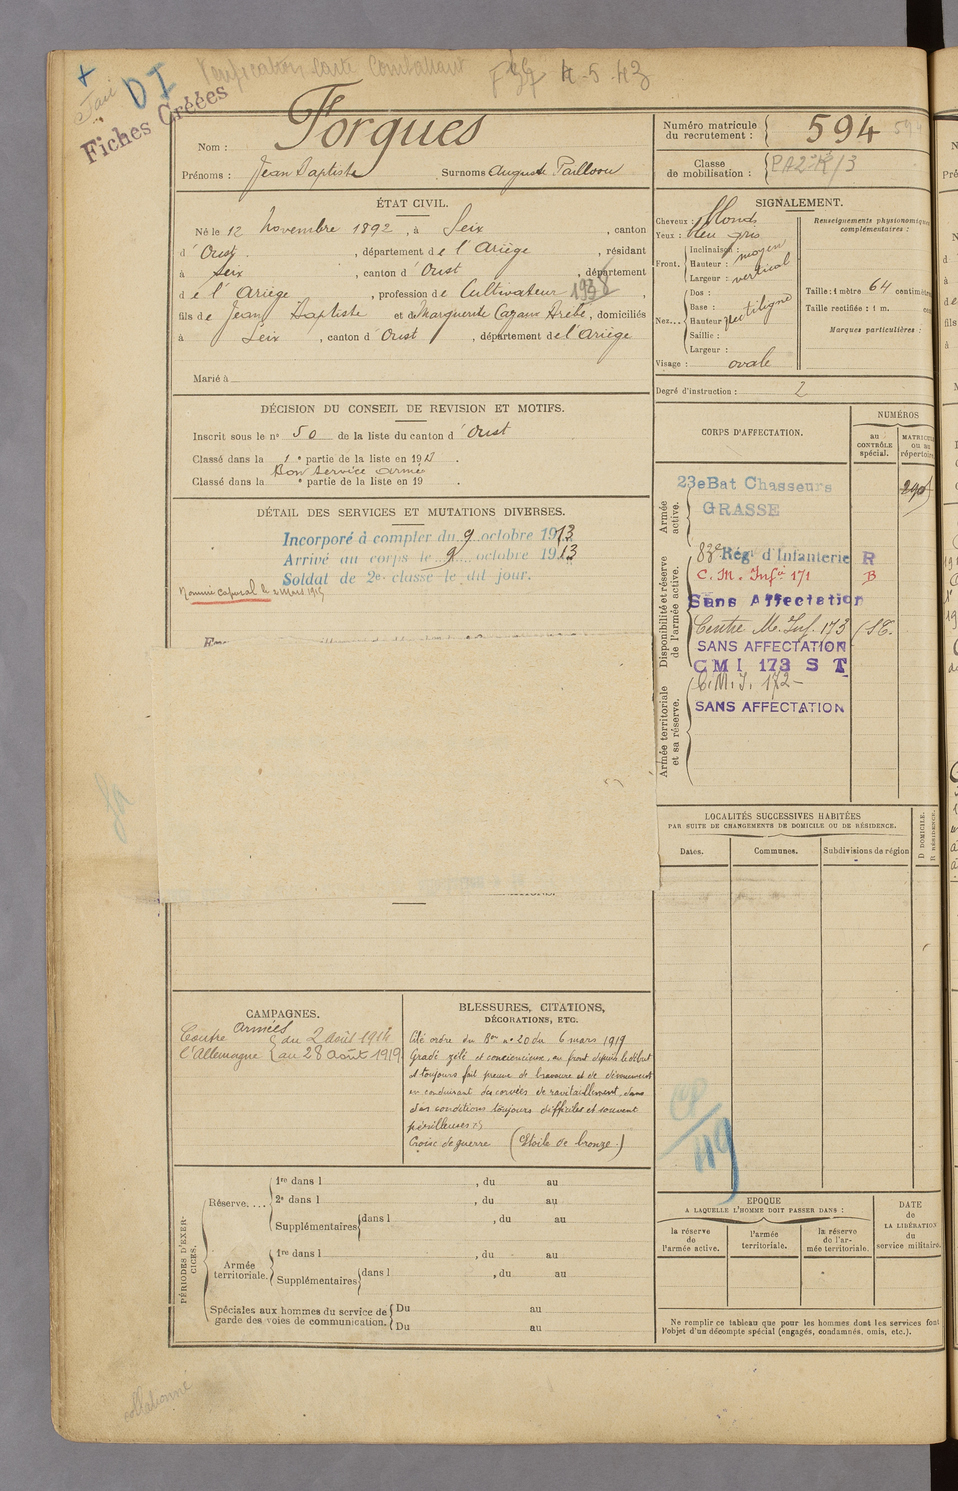 Vérification Carte Combattant
4-5-43
DI
Fait
Fiches Créées
Nom : Forgues
Prénoms : Jean Baptiste Surnoms Auguste
Numéro matricule du recrutement : 594
Classe de mobilisation :
ÉTAT CIVIL.
Né le 12 novembre 1892, à Seix, canton
d'Oust, département de l'Ariège, résidant
à Seix, canton d'Oust, département
de l'Ariège, profession de Cultivateur 1938
fils de Jean Baptiste et de Marguerite, domiciliés
à Seix, canton d'Oust, département de l'Ariège
Marié à
SIGNALEMENT.
Cheveux : blonds
Yeux : bleu gris
Front. Inclinaison : moyen
Hauteur :
Largeur : vertical
Nez... Dos :
Base :
Hauteur rectiligne
Saillie :
Largeur :
Visage : ovale
Renseignements physionomiques
complémentaires :
Taille : 1 mètre 64 centimètres
Taille rectifiée : 1 m.
Marques particulières :
Degré d'instruction : 2
DÉCISION DU CONSEIL DE REVISION ET MOTIFS.
Inscrit sous le n° 50 de la liste du canton d'Oust
Classé dans la 1e partie de la liste en 1913.
Bon service armé
Classé dans la e partie de la liste en 19 .
DÉTAIL DES SERVICES ET MUTATIONS DIVERSES.
Incorporé à compter du 9 octobre 1913
Arrivé au corps le 9 octobre 1913
Soldat de 2e classe le dit jour.
Nommé caporal le 2 mars 1915
CORPS D'AFFECTATION.
NUMÉROS
au CONTRÔLE spécial.
MATRICULE ou au répertoire
Armée active.
23e Bat Chasseurs
GRASSE
Disponibilité et réserve de l'armée active.
83e Rég. d'Infanterie R
C. M. Infie 171 B
Sans Affectation
Centre M. Inf. 173 (S.T.
SANS AFFECTATION
CMI 173 S T
Armée territoriale et sa réserve.
C.M.I. 172-
SANS AFFECTATION
LOCALITÉS SUCCESSIVES HABITÉES
PAR SUITE DE CHANGEMENTS DE DOMICILE OU DE RÉSIDENCE.
Dates.
Communes.
Subdivisions de région
D DOMICILE.
R RÉSIDENCE.
CAMPAGNES.
Contre Armées du 2 Août 1914
l'Allemagne au 28 Août 1919
BLESSURES, CITATIONS,
DÉCORATIONS, ETC.
Cité ordre du Bon n° 20 du 6 mars 1919
Gradé zélé et consciencieux, au front depuis le début
a toujours fait preuve de bravoure et de dévouement
en conduisant des corvées de ravitaillement dans
des conditions toujours difficiles et souvent
périlleuses
Croix de guerre (Etoile de bronze.)
49
PÉRIODES D'EXERCICES.
Réserve.... 1re dans l , du au
2e dans l , du au
Supplémentaires dans l , du au
Armée territoriale. 1re dans l , du au
Supplémentaires dans l , du au
Spéciales aux hommes du service de garde des voies de communication. Du au
Du au
EPOQUE
A LAQUELLE L'HOMME DOIT PASSER DANS :
la réserve de l'armée active.
l'armée territoriale.
la réserve de l'armée territoriale.
DATE de LA LIBÉRATION du service militaire.
Ne remplir ce tableau que pour les hommes dont les services font
l'objet d'un décompte spécial (engagés, condamnés, omis, etc.).
collationné